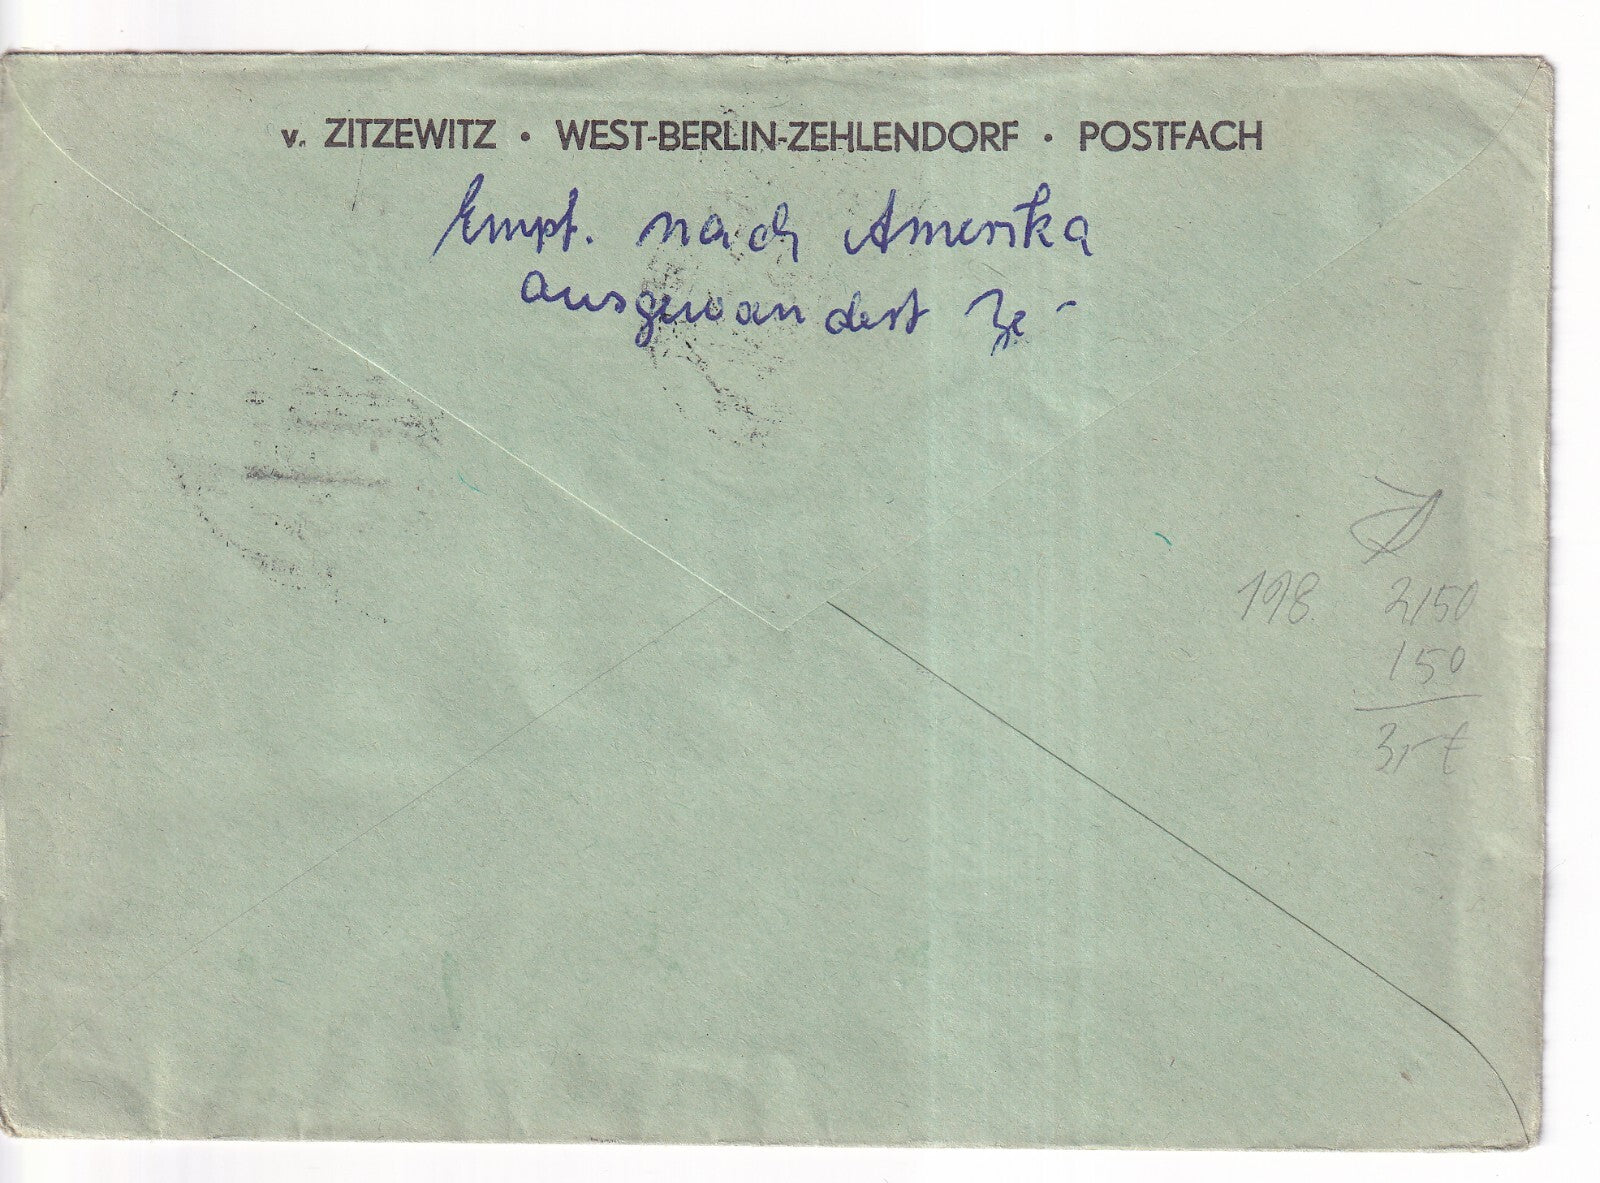 v. ZITZEWITZ · WEST-BERLIN-ZEHLENDORF · POSTFACH
Empf. nach Amerika
ausgewandert
198. 2/50
150